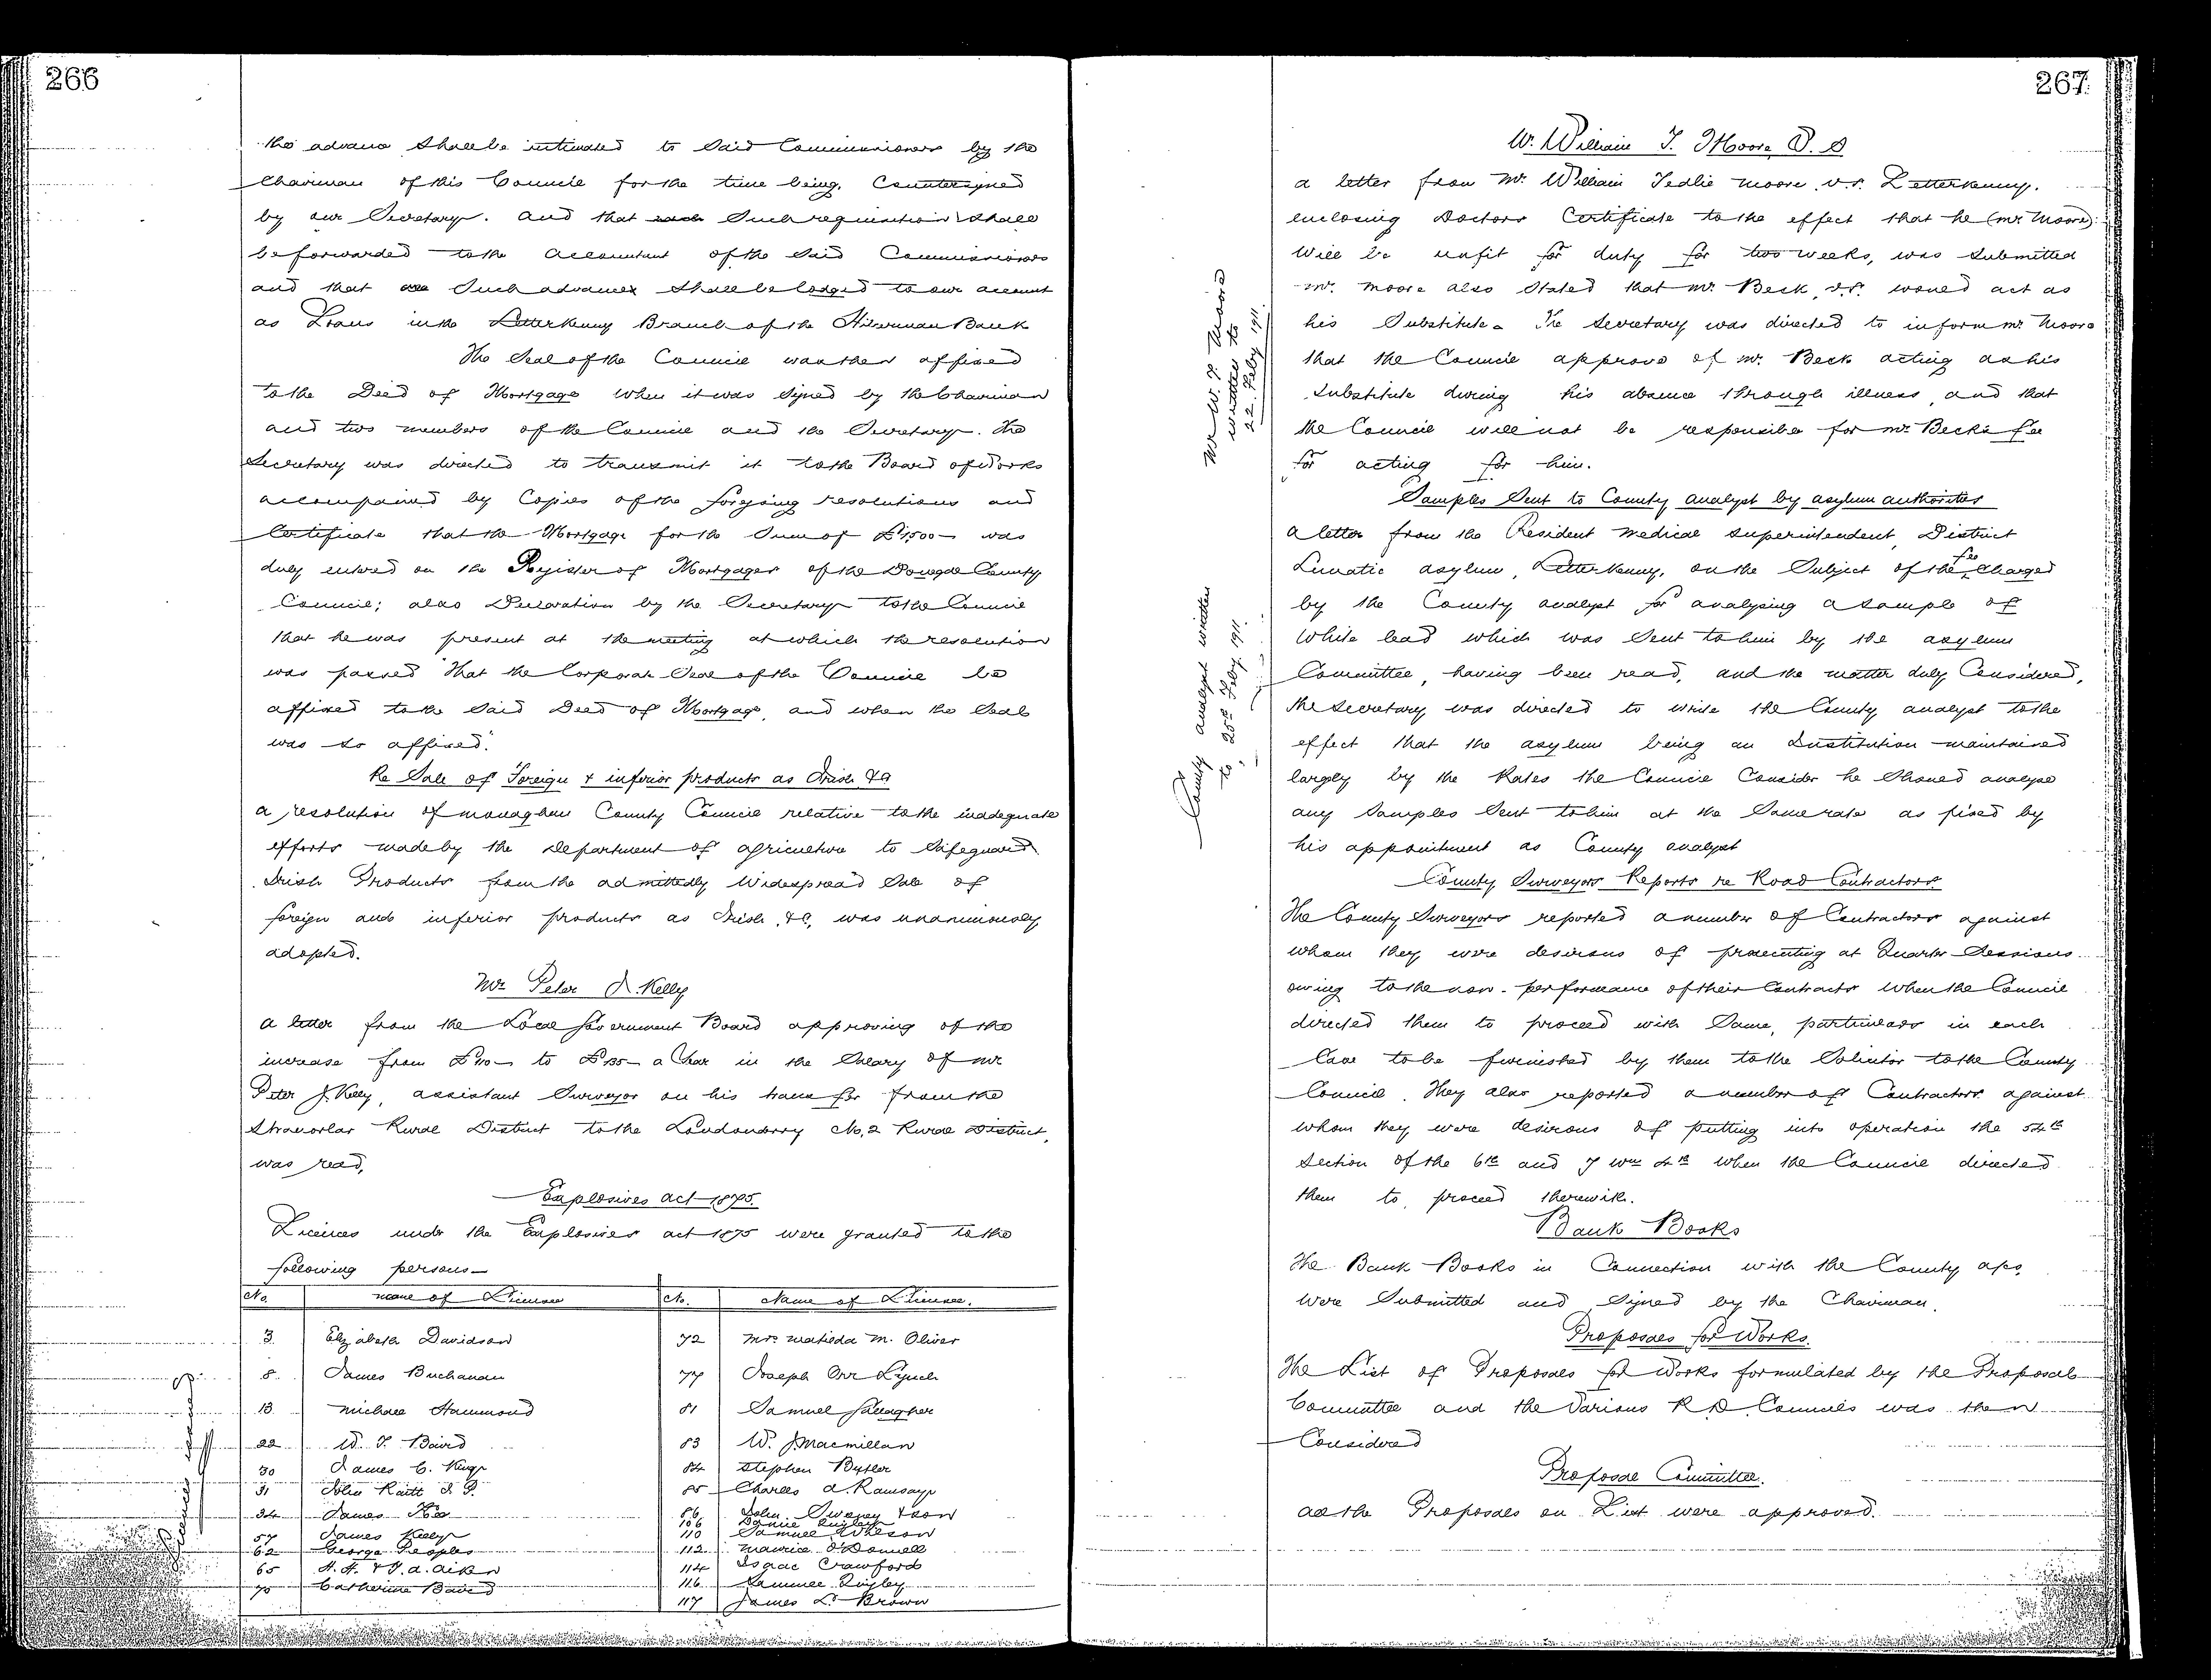 266
the advance shall be intimated to said Commissioners by the
Chairman of this Council for the time being, Countersigned
by our Secretary. and that each Such requisition shall
be forwarded to the accountant of the said Commissioners
and that all Such advances shall be lodged to our account
as Loans in the Letterkenny Branch of the Hibernian Bank
The Seal of the Council was then affixed
to the Deed of Mortgage when it was signed by the Chairman
and two members of the Council and the Secretary. The
Secretary was directed to transmit it to the Board of Works
accompanied by Copies of the foregoing resolutions and
Certificate that the Mortgage for the Sum of £1,500 - was
duly entered on the Register of Mortgages of the Donegal County
Council; also Declaration by the Secretary to the Council
that he was present at the meeting at which the resolution
was passed "That the Corporate Seal of the Council be
affixed to the Said Deed of Mortgage, and when the Seal
was so affixed."
Re Sale of Foreign & inferior products as Irish &c
a resolution of Monaghan County Council relative to the inadequate
efforts made by the Department of agriculture to Safeguard
Irish Products from the admittedly Widespread Sale of
foreign and inferior products as Irish, &c, was unanimously
adopted.
Mr Peter J. Kelly
a letter from the Local Government Board approving of the
increase from £110 - to £135 - a Year in the Salary of Mr
Peter J. Kelly, assistant Surveyor on his transfer from the
Stranorlar Rural District to the Londonderry No. 2 Rural District,
was read,
Explosives act 1875.
Licences under the Explosives act 1875 were granted to the
following persons -
No. name of Licensee No. Name of Licensee.
3 Elizabeth Davidson 72 Mrs Matilda M. Oliver
8 James Buchanan 77 Joseph Orr Lynch
13 Michael Hammond 81 Samuel Gallagher
22 W. J. Baird 83 W. J. Macmillan
30 James C. King 84 Stephen Butler
31 John Raitt J. P. 85 Charles A Ramsay
34 James Kee 86 John Sweney & son
106 Daniel Quigley
57 James Kelly 110 Samuel Wilson
62 George Peoples 112 Maurice O'Donnell
65 H. H. & J. A. Aiken 114 Isaac Crawford
70 Catherine Baird 116 Samuel Quigley
117 James L. Brown
267
W. William T. Moore V. S
a letter from Mr. William Tedlie Moore, V.S. Letterkenny.
enclosing Doctors Certificate to the effect that he (Mr. Moore)
Will be unfit for duty for two weeks, was Submitted
Mr. Moore also Stated that Mr. Beck, V.S. would act as
his Substitute. The Secretary was directed to inform Mr. Moore
that the Council approve of Mr. Beck acting as his
Substitute during his absence through illness, and that
the Council will not be responsible for Mr. Beck's fee
for acting for him.
Mr W. T. Moore
written to
22 Feby 1911
Samples Sent to County analyst by asylum authorities
a letter from the Resident Medical Superintendent, District
Lunatic asylum, Letterkenny, on the Subject of the fee Charged
by the County analyst for analysing a Sample of
White lead which was Sent to him by the asylum
Committee, having been read, and the matter duly Considered,
the Secretary was directed to write the County analyst to the
effect that the asylum being an Institution maintained
largely by the Rates the Council Consider he Should analyse
any Samples Sent to him at the Same rate as fixed by
his appointment as County analyst
County analyst written
to 25th Feby 1911.
County Surveyors Reports re Road Contractors
The County Surveyors reported a number of Contractors against
whom they were desirous of prosecuting at Quarter Sessions
owing to the non-performance of their Contracts when the Council
directed them to proceed with Same, particulars in each
Case to be furnished by them to the Solicitor to the County
Council. They also reported a number of Contractors against
whom they were desirous of putting into operation the 54th
Section of the 6th and 7 Wm 4th when the Council directed
them to proceed therewith.
Bank Books
The Bank Books in Connection with the County a/cs
Were Submitted and Signed by the Chairman.
Proposals for Works.
The List of Proposals for Works formulated by the Proposals
Committee and the Various R D Councils was then
Considered
Proposal Committee.
all the Proposals on List were approved.